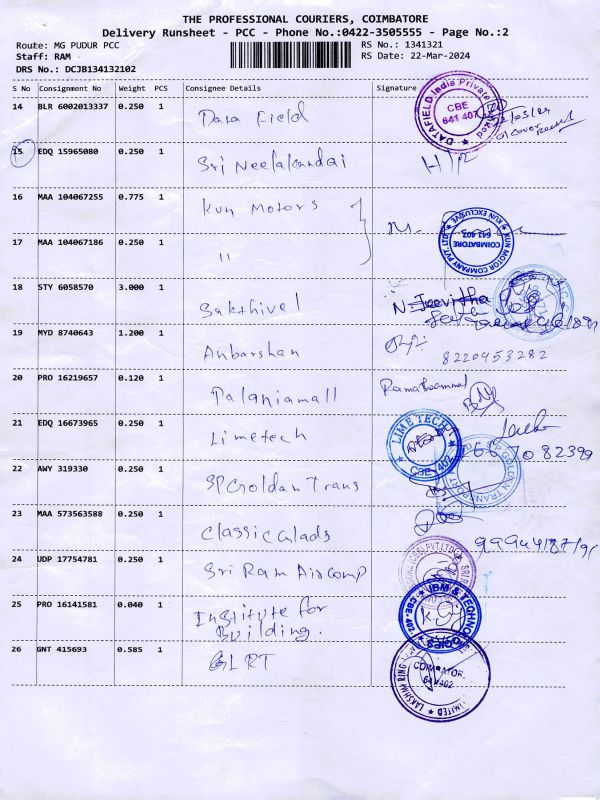 THE PROFESSIONAL COURIERS, COIMBATORE
Delivery Runsheet - PCC - Phone No.:0422-3505555 - Page No.:2
Route: MG PUDUR PCC RS No.: 1341321
Staff: RAM RS Date: 22-Mar-2024
DRS No.: DCJB134132102
S No Consignment No Weight PCS Consignee Details Signature
14 BLR 6002013337 0.250 1 Data Field
DATAFIELD India Private Limited CBE 641 407
15 EDQ 15965080 0.250 1 Sri Neelakandai H/R
16 MAA 104067255 0.775 1 Kun Motors
KUN MOTOR COMPANY PVT. LTD. KUN EXCLUSIVE COIMBATORE 641 403
17 MAA 104067186 0.250 1 "
18 STY 6058570 3.000 1 Sakthivel N. Jeevitha
19 MYD 8740643 1.200 1 Anbarshan 8220453282
20 PRO 16219657 0.120 1 Palaniamall
21 EDQ 16673965 0.250 1 Limetech
LIME TECH CBE 402
22 AWY 319330 0.250 1 SP Goldan Trans
23 MAA 573563588 0.250 1 Classic Glads
24 UDP 17754781 0.250 1 Sri Ram Aircomp
25 PRO 16141581 0.040 1 Institute for
Building.
26 GNT 415693 0.585 1 GLRT